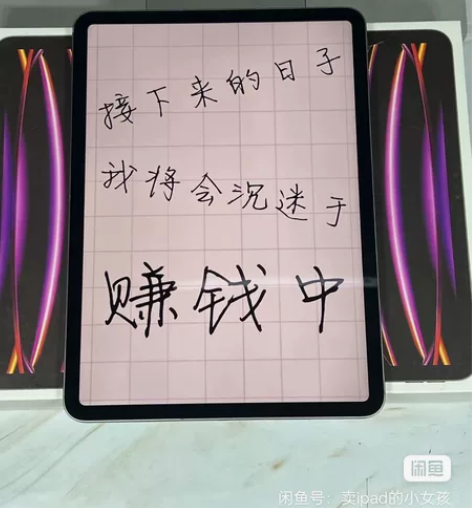 接下来的日子
我将会沉迷于
赚钱中
闲鱼
闲鱼号：卖ipad的小女孩